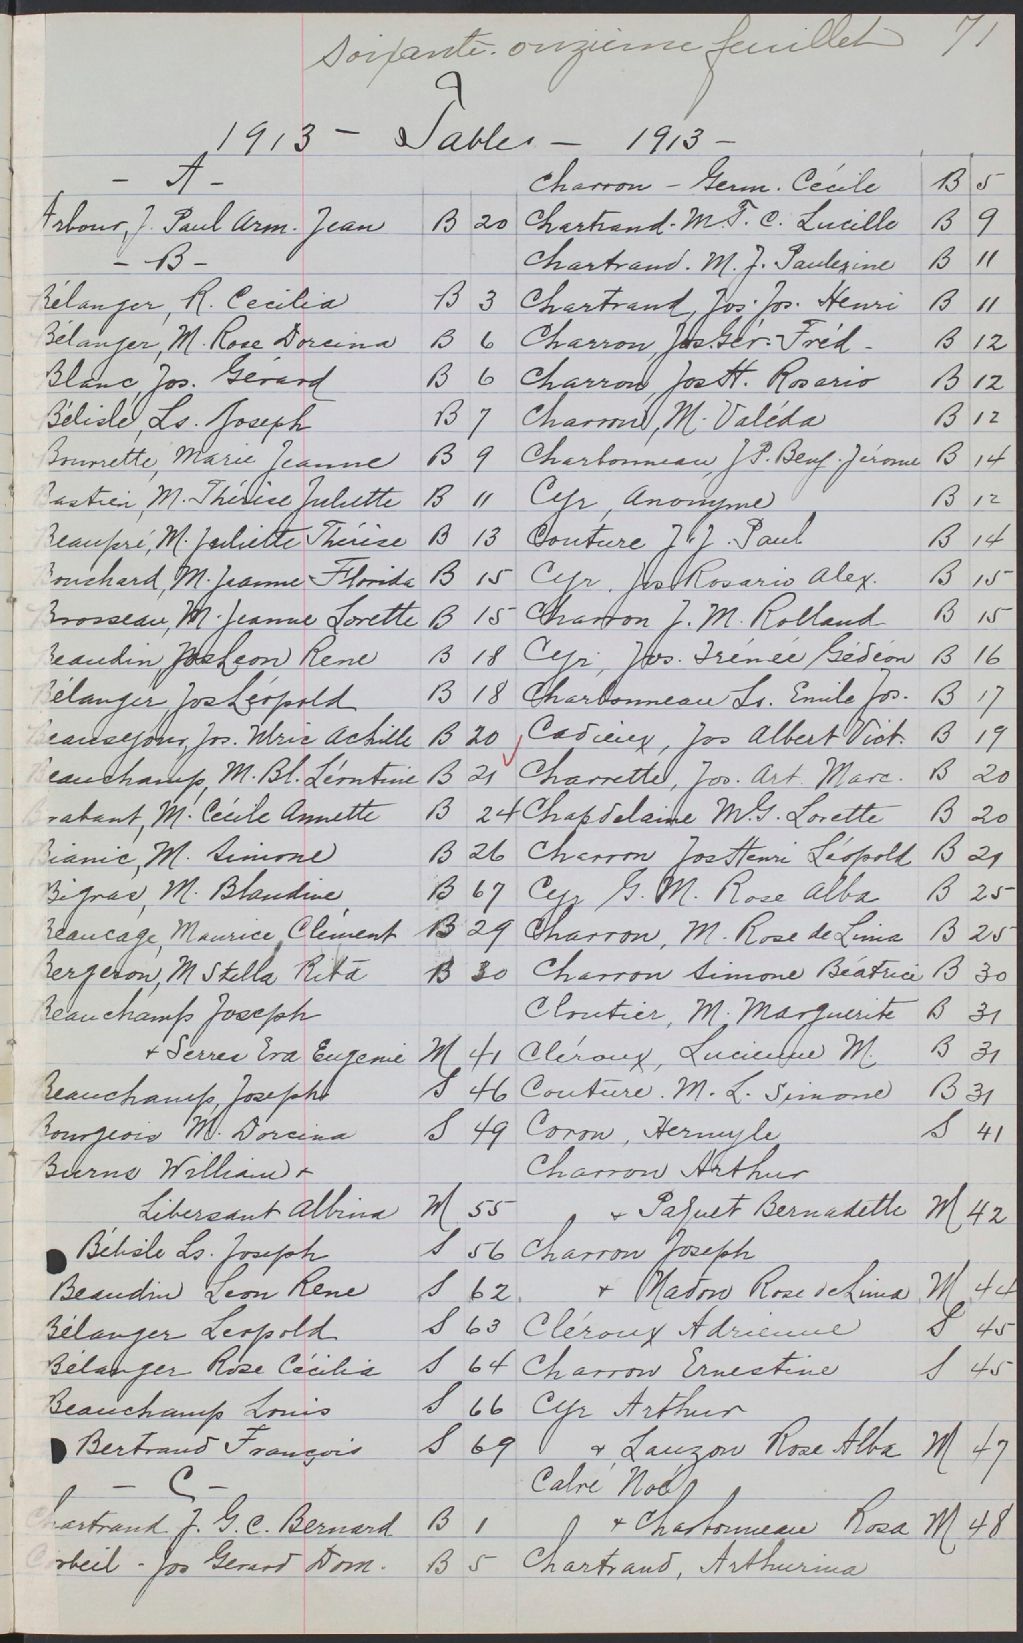 soixante-onzième feuillet 71
1913 - Tables - 1913 -
- A -
Arbour, J. Paul Arm. Jean B 20
- B -
Bélanger, R. Cecilia B 3
Bélanger, M. Rose Dorcina B 6
Blanc, Jos. Gérard B 6
Bélisle, Ls. Joseph B 7
Bourrette, Marie Jeanne B 9
Bastien, M. Thérèse Juliette B 11
Beaupré, M. Juliette Thérèse B 13
Bouchard, M. Jeanne Florida B 15
Brosseau, M. Jeanne Lorette B 15
Beaudin Jos Leon Rene B 18
Bélanger Jos Léopold B 18
Beausejour, Jos. Ulric Achille B 20
Beauchamp, M. Bl. Léontine B 21
Brabant, M. Cécile Annette B 24
Bianic, M. Simone B 26
Bigras, M. Blandine B 67
Beaucage, Maurice Clément B 29
Bergeron, M Stella Rita B 30
Beauchamp Joseph
+ Serres Eva Eugenie M 41
Beauchamp, Joseph S 46
Bourgeois M. Dorcina S 49
Burns William +
Libersant Albina M 55
Bélisle Ls. Joseph S 56
Beaudin Leon Rene S 62
Bélanger Leopold S 63
Bélanger Rose Cécilia S 64
Beauchamp Louis S 66
Bertrand François S 69
- C -
Chartrand J. G. C. Bernard B 1
Corbeil - Jos Gerard Dom. B 5
Charron - Germ. Cécile B 5
Chartrand. M. F. C. Lucille B 9
Chartrand. M. J. Paulezine B 11
Chartrand, Jos. Jos. Henri B 11
Charron, Jos Gér. Fréd - B 12
Charron, Jos H. Rosario B 12
Charron, M. Valéda B 12
Charbonneau J. P. Benj. Jérome B 14
Cyr, Anonyme B 12
Couture J. J. Paul B 14
Cyr, Jos Rosario Alex. B 15
Charron J. M. Rolland B 15
Cyr, Jos. Irénée Gédéon B 16
Charbonneau Ls. Emile Jos. B 17
Cadieux, Jos Albert Vict. B 19
Charrette, Jos. Art. Marc. B 20
Chapdelaine M. G. Lorette B 20
Charron Jos Henri Léopold B 21
Cyr G. M. Rose Alba B 25
Charron, M. Rose de Lima B 25
Charron Simone Béatrice B 30
Cloutier, M. Marguerite B 31
Cléroux, Lucienne M. B 31
Couture. M. L. Simone B 31
Coron, Hermyle S 41
Charron Arthur
+ Paquet Bernadette M 42
Charron Joseph
+ Nadon Rose de Lima M 44
Cléroux Adrienne S 45
Charron Ernestine S 45
Cyr Arthur
+ Lauzon Rose Alba M 47
Calvé Noé
+ Charbonneau Rosa M 48
Chartrand, Arthurina